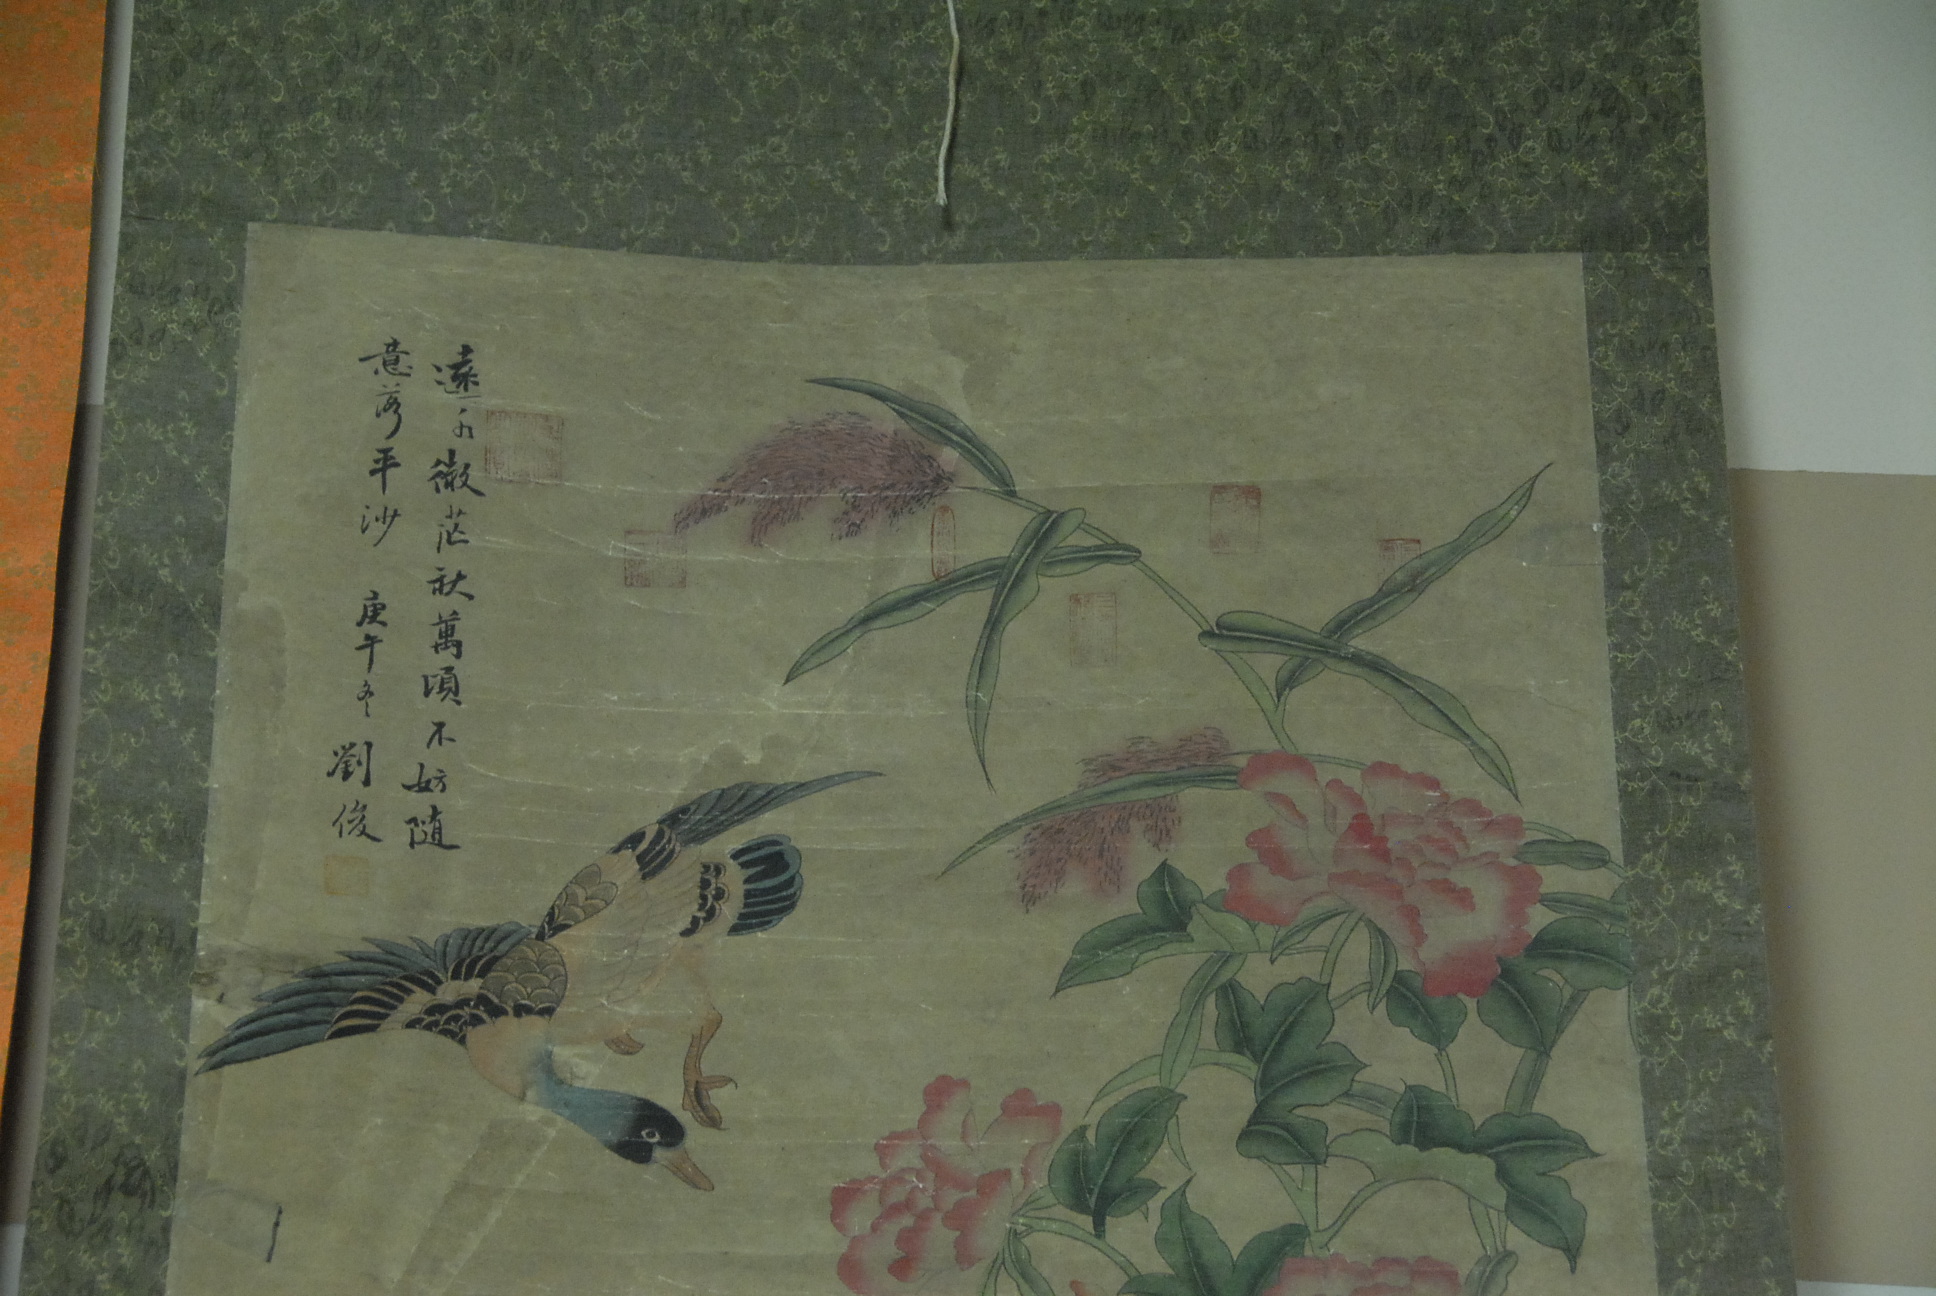 遠水微茫秋萬頃不妨隨
意落平沙 庚午冬 劉俊